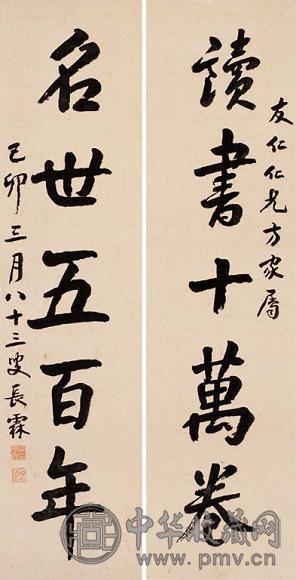 友仁仁兄方家屬
讀書十萬卷
名世五百年
己卯三月八十三叟長霖
中华收藏网
www.pmv.cn